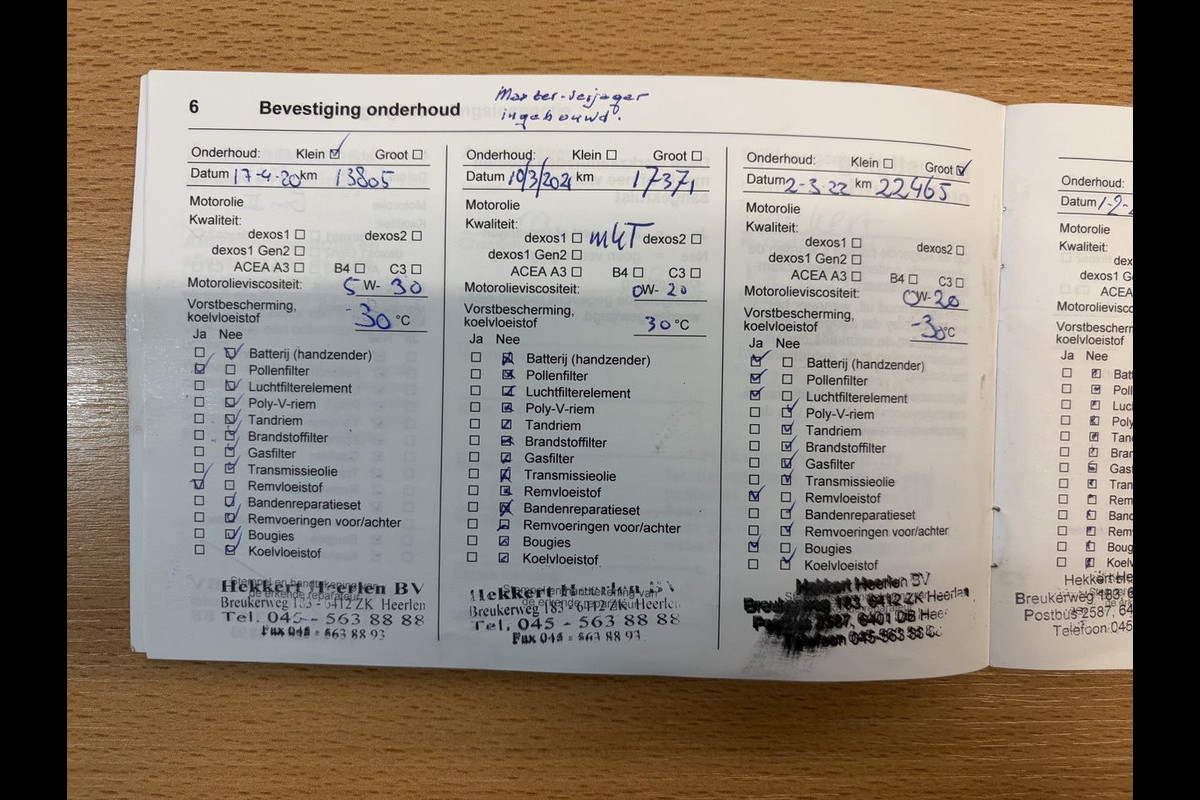 6 Bevestiging onderhoud
Marter-verjager
ingebouwd.
Onderhoud: Klein ☑ Groot ☐
Datum 17-4-20 km 13805
Motorolie
Kwaliteit:
dexos1 ☐ dexos2 ☐
dexos1 Gen2 ☐
ACEA A3 ☐ B4 ☐ C3 ☐
Motorolieviscositeit: 5W-30
Vorstbescherming,
koelvloeistof -30 °C
Ja Nee
☐ ☑ Batterij (handzender)
☑ ☐ Pollenfilter
☐ ☑ Luchtfilterelement
☐ ☑ Poly-V-riem
☐ ☑ Tandriem
☐ ☑ Brandstoffilter
☐ ☑ Gasfilter
☐ ☑ Transmissieolie
☑ ☐ Remvloeistof
☐ ☑ Bandenreparatieset
☐ ☑ Remvoeringen voor/achter
☐ ☑ Bougies
☐ ☑ Koelvloeistof
Hekkert Heerlen BV
Breukerweg 183 - 6412 ZK Heerlen
Tel. 045 - 563 88 88
Fax 045 - 563 88 93
Onderhoud: Klein ☐ Groot ☐
Datum 10/3/2021 km 17371
Motorolie
Kwaliteit:
dexos1 ☐ dexos2 ☐
dexos1 Gen2 ☐
ACEA A3 ☐ B4 ☐ C3 ☐
Motorolieviscositeit: 0W-20
Vorstbescherming,
koelvloeistof 30 °C
Ja Nee
☐ ☑ Batterij (handzender)
☐ ☑ Pollenfilter
☐ ☑ Luchtfilterelement
☐ ☑ Poly-V-riem
☐ ☑ Tandriem
☐ ☑ Brandstoffilter
☐ ☑ Gasfilter
☐ ☑ Transmissieolie
☐ ☑ Remvloeistof
☐ ☑ Bandenreparatieset
☐ ☑ Remvoeringen voor/achter
☐ ☑ Bougies
☐ ☑ Koelvloeistof
Hekkert Heerlen BV
Breukerweg 183 - 6412 ZK Heerlen
Tel. 045 - 563 88 88
Fax 045 - 563 88 93
Onderhoud: Klein ☐ Groot ☑
Datum 2-3-22 km 22465
Motorolie
Kwaliteit:
dexos1 ☐ dexos2 ☐
dexos1 Gen2 ☐
ACEA A3 ☐ B4 ☐ C3 ☐
Motorolieviscositeit: 0W-20
Vorstbescherming,
koelvloeistof -30°C
Ja Nee
☑ ☐ Batterij (handzender)
☑ ☐ Pollenfilter
☑ ☐ Luchtfilterelement
☐ ☑ Poly-V-riem
☐ ☑ Tandriem
☐ ☑ Brandstoffilter
☐ ☑ Gasfilter
☐ ☑ Transmissieolie
☑ ☐ Remvloeistof
☐ ☑ Bandenreparatieset
☐ ☑ Remvoeringen voor/achter
☑ ☐ Bougies
☐ ☑ Koelvloeistof
Hekkert Heerlen BV
Breukerweg 183, 6412 ZK Heerlen
Postbus 2587, 6401 DB Heer
045-563 88
Onderhoud:
Datum 1-2-
Motorolie
Kwaliteit:
dexos1 G
ACEA
Motorolievisc
Vorstbescherm
koelvloeistof
Ja Nee
☐ ☑ Batt
☐ ☑ Poll
☐ ☑ Luc
☐ ☑ Poly
☐ ☑ Tan
☐ ☑ Bran
☐ ☑ Gas
☐ ☑ Tran
☐ ☑ Rem
☐ ☑ Band
☐ ☑ Rem
☐ ☑ Boug
☐ ☑ Koelv
Hekkert He
Breukerweg 183, 6
Postbus 2587, 64
Telefoon 045